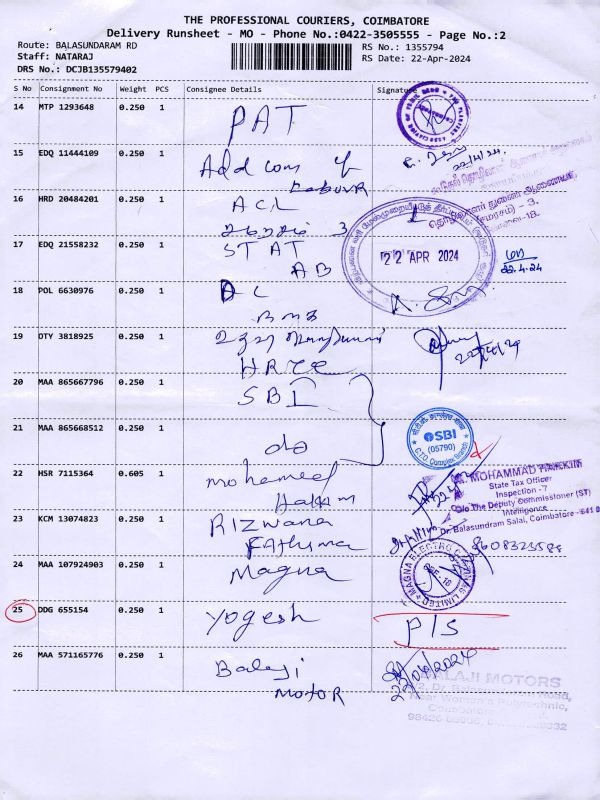 THE PROFESSIONAL COURIERS, COIMBATORE
Delivery Runsheet - MO - Phone No.:0422-3505555 - Page No.:2
Route: BALASUNDARAM RD
RS No.: 1355794
Staff: NATARAJ
RS Date: 22-Apr-2024
DRS No.: DCJB135579402
S No Consignment No Weight PCS Consignee Details Signature
14 MTP 1293648 0.250 1 PAT
15 EDQ 11444109 0.250 1 Add com of
Labour
22/4/24
16 HRD 20484201 0.250 1 ACL
3
17 EDQ 21558232 0.250 1 STAT
AB
22 APR 2024
22.4.24
18 POL 6630976 0.250 1 DC
19 DTY 3818925 0.250 1
HRCE
22/4/24
20 MAA 865667796 0.250 1 SBI
21 MAA 865668512 0.250 1 do
SBI
(05790)
C.T.O. Complex Branch
22 HSR 7115364 0.605 1 Mohameed
Hakkim
MOHAMMAD HAKKIM
State Tax Officer
Inspection -7
O/o The Deputy Commissioner (ST)
Intelligence
Dr. Balasundram Salai, Coimbatore - 641 0
23 KCM 13074823 0.250 1 RIZWANA
FATHIMA
24 MAA 107924903 0.250 1 Magna
CBE-18
25 DDG 655154 0.250 1 Yogesh P/S
26 MAA 571165776 0.250 1 Balaji
MOTOR
22/04/2024
BALAJI MOTORS
Near Women's Polytechnic,
Coimbatore